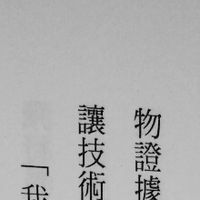 物證據
讓技術
「我